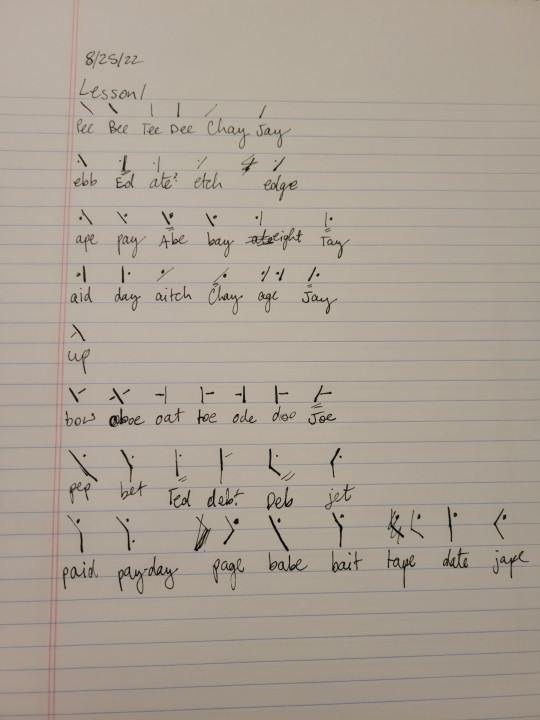 8/25/22
Lesson 1
Pee Bee Tee Dee Chay Jay
ebb Ed ate? etch edge
ape pay Abe bay eight Tay
aid day aitch Chay age Jay
up
bow oboe oat toe ode doe Joe
pep bet Ted debt Deb jet
paid pay-day page babe bait tape date jape